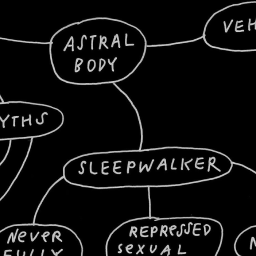 ASTRAL
BODY
VEH
YTHS
SLEEPWALKER
NEVER
FULLY
REPRESSED
SEXUAL
N